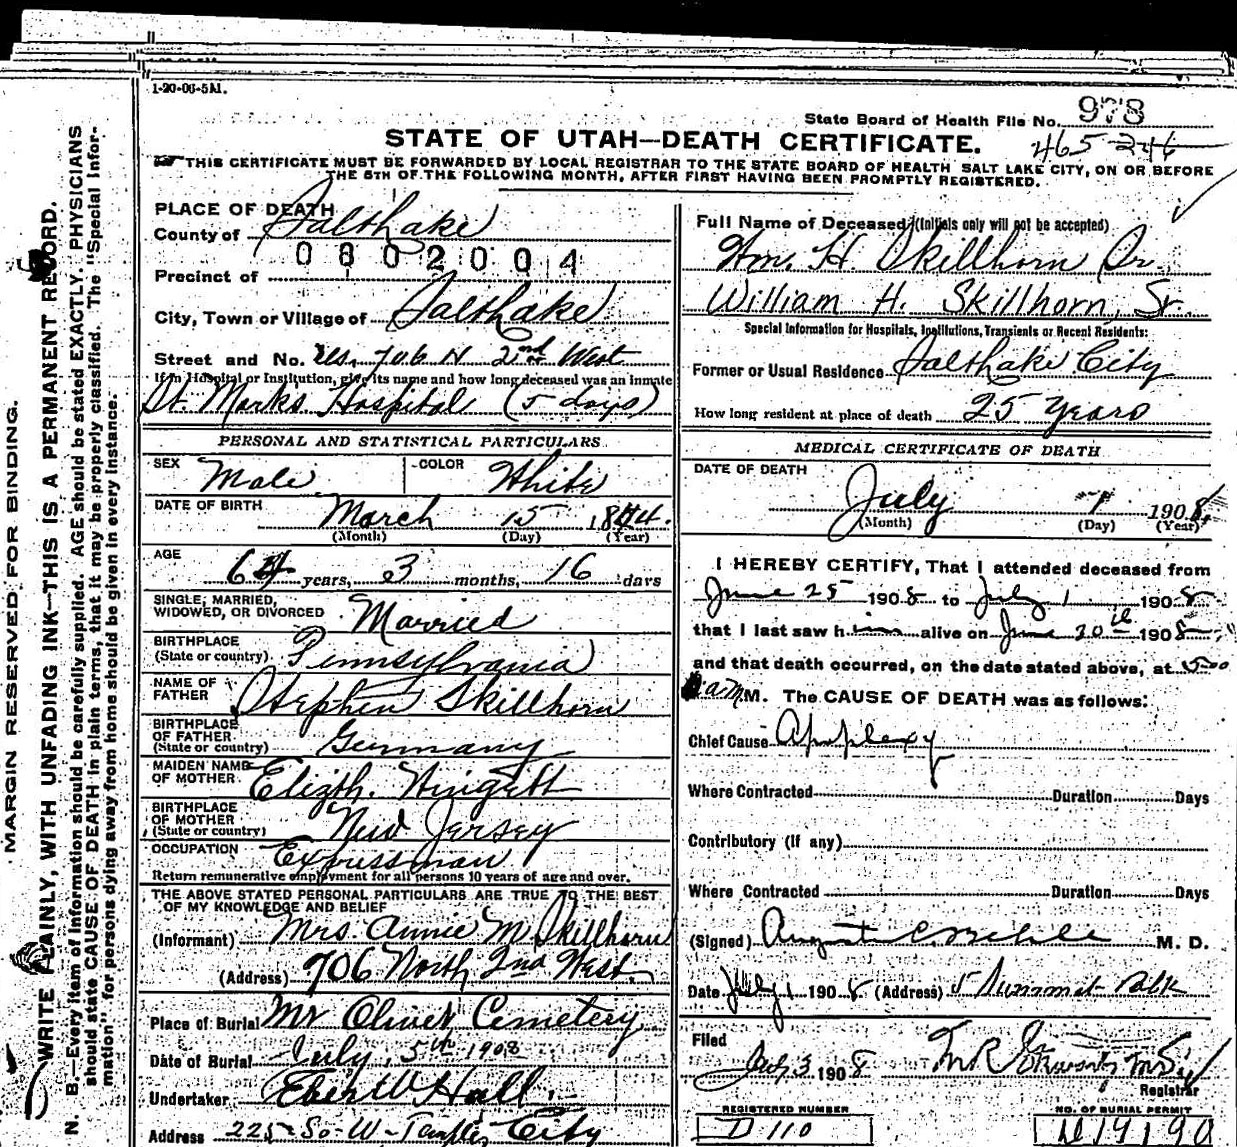 1-20-06-5M.
State Board of Health File No. 978
STATE OF UTAH—DEATH CERTIFICATE.
465 246
THIS CERTIFICATE MUST BE FORWARDED BY LOCAL REGISTRAR TO THE STATE BOARD OF HEALTH SALT LAKE CITY, ON OR BEFORE
THE 5TH OF THE FOLLOWING MONTH, AFTER FIRST HAVING BEEN PROMPTLY REGISTERED.
MARGIN RESERVED FOR BINDING.
WRITE PLAINLY, WITH UNFADING INK—THIS IS A PERMANENT RECORD.
N. B.—Every item of information should be carefully supplied. AGE should be stated EXACTLY. PHYSICIANS
should state CAUSE OF DEATH in plain terms, that it may be properly classified. The "Special Infor-
mation" for persons dying away from home should be given in every instance.
PLACE OF DEATH
County of Salt Lake
0802004
Precinct of
City, Town or Village of Salt Lake
Street and No. Res. 706 N 2nd West
If in Hospital or Institution, give its name and how long deceased was an inmate
St. Marks Hospital (5 days)
PERSONAL AND STATISTICAL PARTICULARS
SEX Male COLOR White
DATE OF BIRTH March 15 1844.
(Month) (Day) (Year)
AGE 64 years, 3 months, 16 days
SINGLE, MARRIED,
WIDOWED, OR DIVORCED Married
BIRTHPLACE
(State or country) Pennsylvania
NAME OF
FATHER Stephen Skillhorn
BIRTHPLACE
OF FATHER
(State or country) Germany
MAIDEN NAME
OF MOTHER Elizth.
BIRTHPLACE
OF MOTHER
(State or country) New Jersey
OCCUPATION Expressman
Return remunerative employment for all persons 10 years of age and over.
THE ABOVE STATED PERSONAL PARTICULARS ARE TRUE TO THE BEST
OF MY KNOWLEDGE AND BELIEF
(Informant) Mrs. Annie M Skillhorn
(Address) 706 North 2nd West
Place of Burial Mt Olivet Cemetery
Date of Burial July 5th 1908
Undertaker Eber W Hall.
Address 225 So-W-Temple City
Full Name of Deceased (Initials only will not be accepted)
Wm. H Skillhorn Sr.
William H. Skillhorn, Sr.
Special Information for Hospitals, Institutions, Transients or Recent Residents:
Former or Usual Residence Salt Lake City
How long resident at place of death 25 Years
MEDICAL CERTIFICATE OF DEATH
DATE OF DEATH
July 1 1908
(Month) (Day) (Year)
I HEREBY CERTIFY, That I attended deceased from
June 25 1908 to July 1 1908
that I last saw him alive on June 30th 1908
and that death occurred, on the date stated above, at 5-00
a.m M. The CAUSE OF DEATH was as follows:
Chief Cause Apoplexy
Where Contracted Duration Days
Contributory (if any)
Where Contracted Duration Days
(Signed) August M. D.
Date July 1 1908 (Address) 5 Summit Blk
Filed
July 3 1908
Registrar
REGISTERED NUMBER
D 110
NO. OF BURIAL PERMIT
N 19190